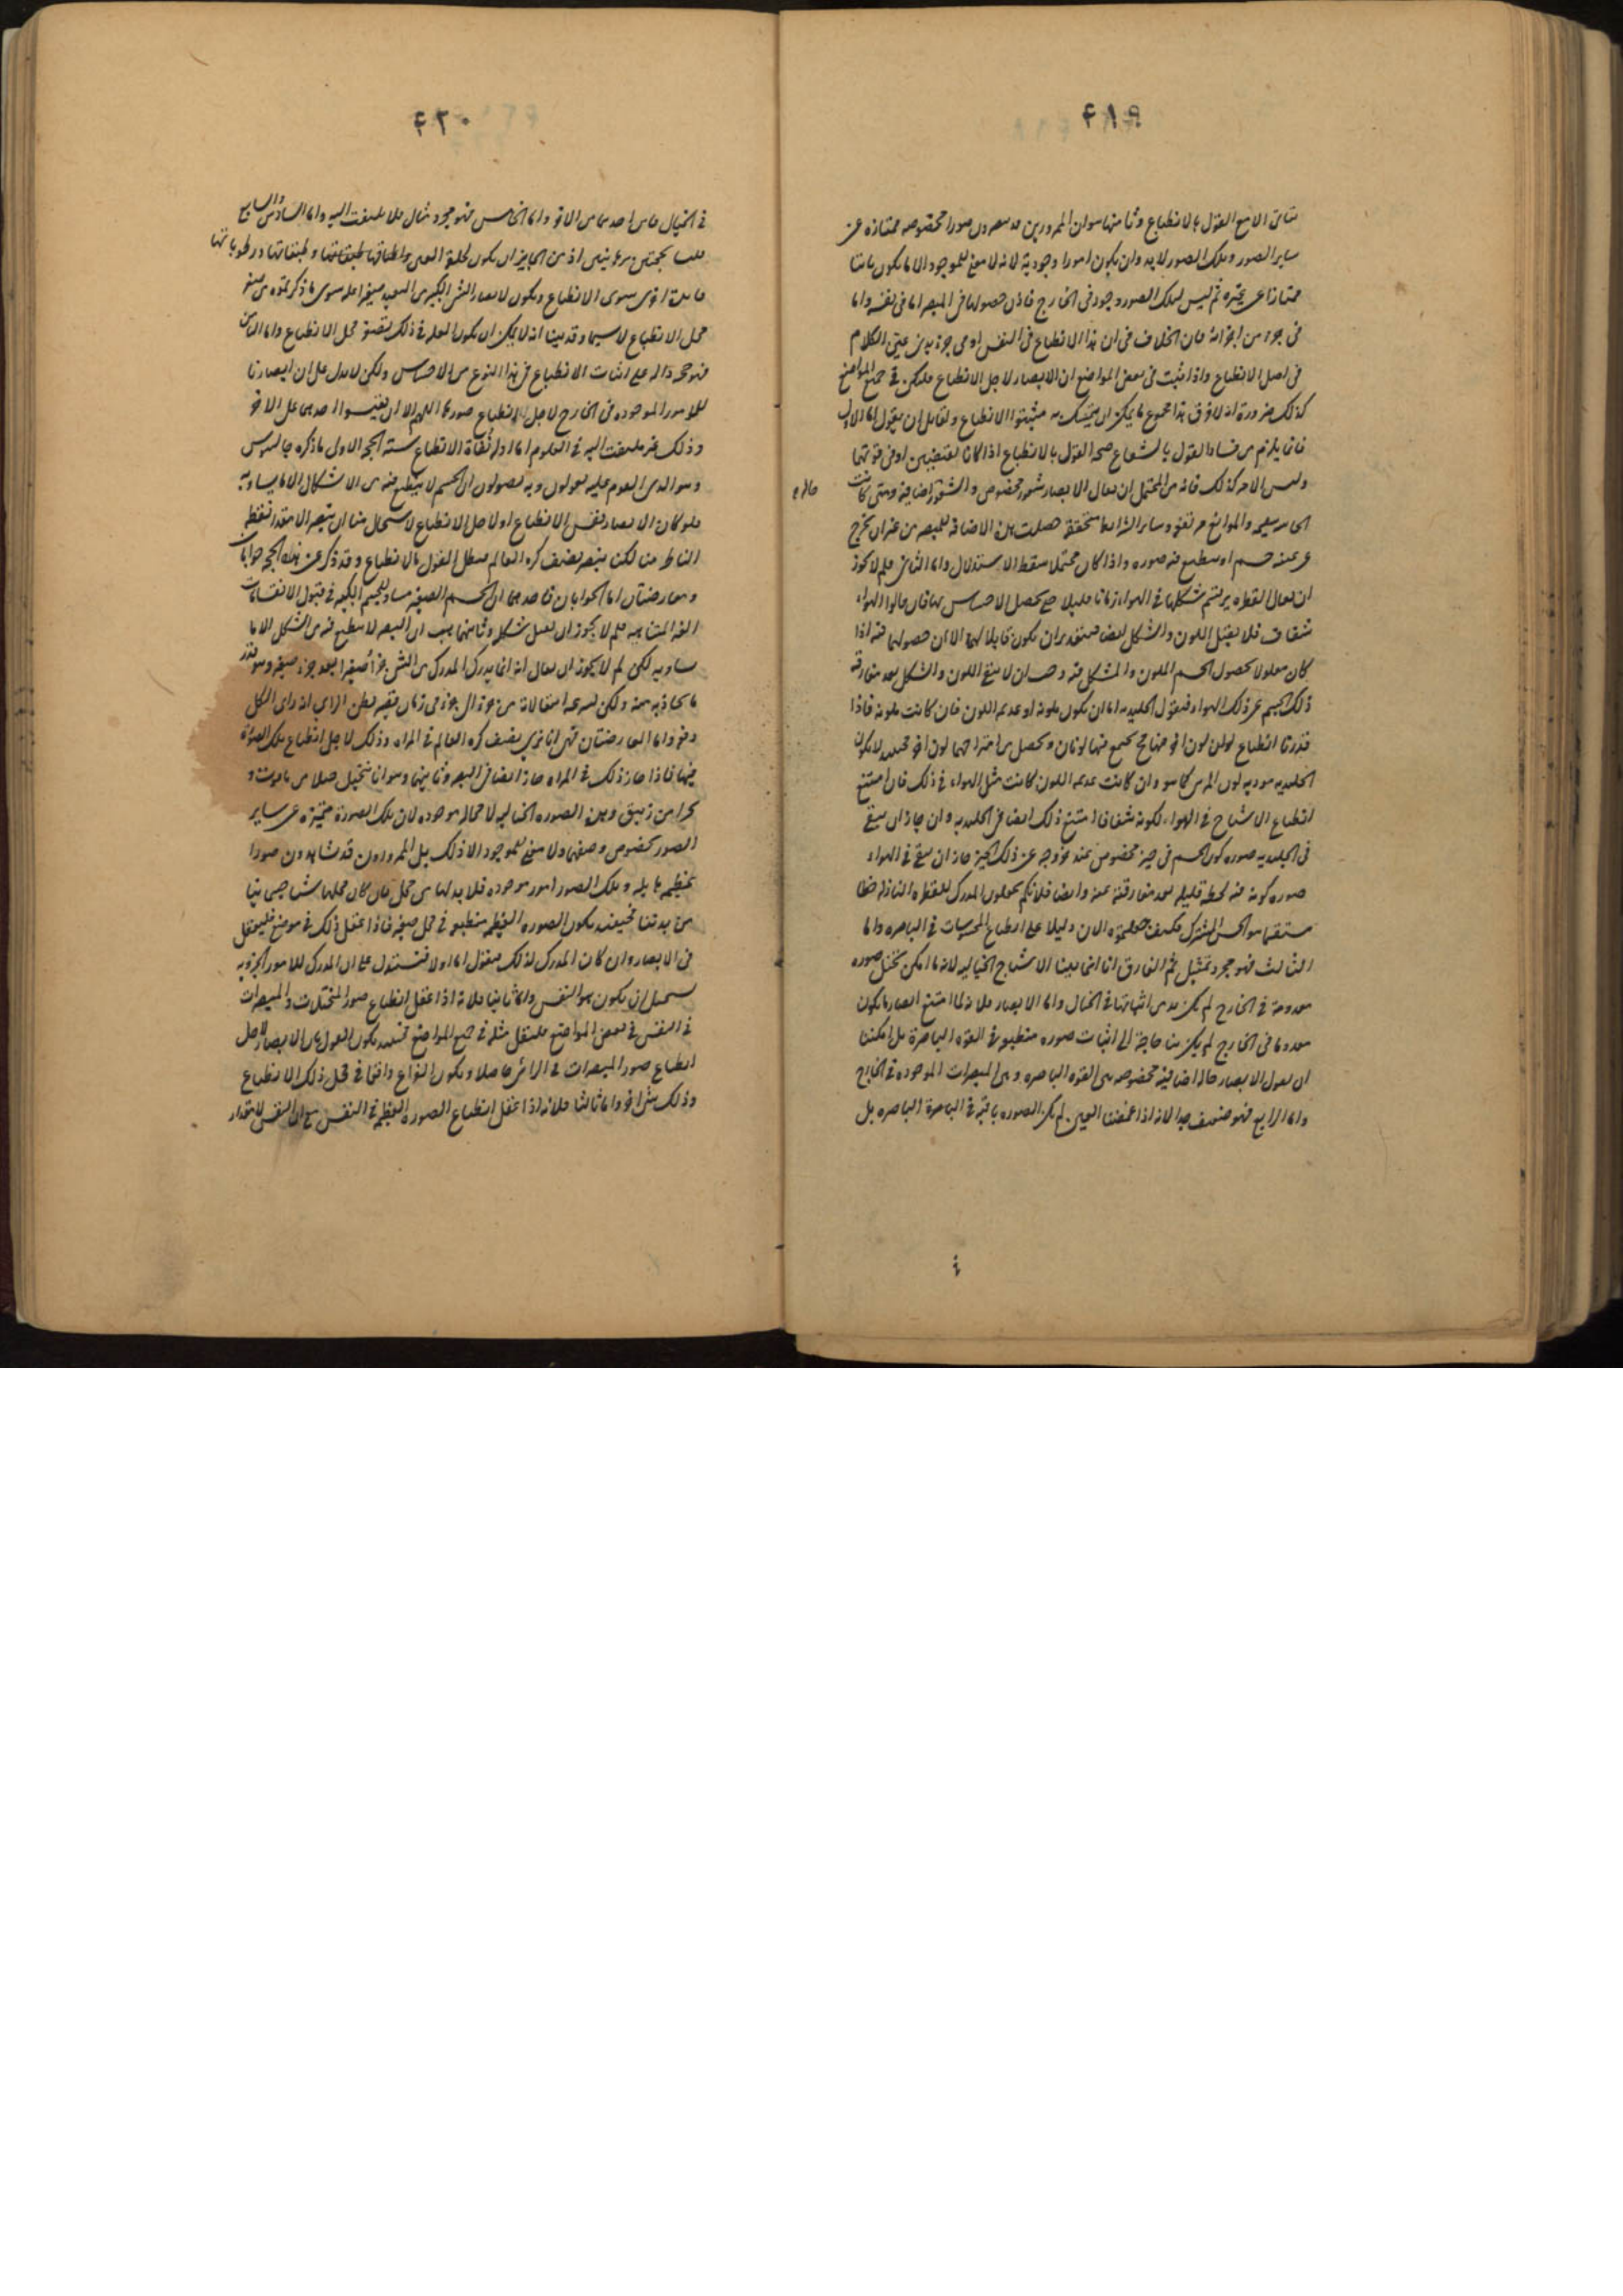 ٤١٩
الا مع القول بالانطباع وثامنها هو ان الممرورين صورا مخصوصه ممتازه عن
ساير الصور وتلك الصور لابد وان يكون امورا وجودية لانه لا معنى للموجود الا ما يكون ثابتا
ممتازا عن غيره ثم ليس لتلك الصور وجود فى الخارج فاذن حصولها فى المبصر اما فى نفسه واما
فى جزء من اجزائه فان الخلاف فى ان هذا الانطباع فى النفس او فى جزء بدن الكلام
فى اصل الانطباع واذا ثبت فى بعض المواضع ان الابصار لاجل الانطباع فليكن فى جميع المواضع
كذلك ضرورة انه لا فرق هذا مجموع ما يمكن ان يتمسك به مثبتوا الانطباع ولقائل ان يقول اما الاول
فانما يلزم من فساد القول بالشعاع صحه القول بالانطباع اذا كانا نقيضين او فى قوتهما
وليس الامر كذلك فانه من المحتمل ان يقال الابصار شعور مخصوص والشعور حاله اضافية ومتى كانت
الحاسه سليمه والموانع مرتفعه وساير الشرايط متحققة حصلت هذه الاضافه للمبصر من غير ان يخرج
عن عينه جسم او ينطبع فيه صوره واذا كان محتملا سقط الاستدلال واما الثانى فلم لا يجوز
ان يقال القطره يرتسم شكلها فى الهواء زمانا قليلا حتى يحصل الاحساس بها فان قالوا الهواء
شفاف فلا يقبل اللون والشكل ايضا فبتقدير ان يكون قابلا لهما الا ان حصولهما فيه اذا
كان معلولا لحصول الجسم الملون والمشكل فيه وجب ان لا يبقى اللون والشكل بعد مفارقة
ذلك الجسم عن ذلك الهواء فنقول الجليديه اما ان يكون ملونه او عديمه اللون فان كانت ملونه فاذا
قدرنا انطباع لون اخر فيها يجتمع فيها لونان ويحصل من امتزاجهما لون اخر فحينئذ لا يكون
الجليديه موديه لون المرئى كما هو وان كانت عديمه اللون كانت مثل الهواء فى ذلك فان امتنع
انطباع الاشباح فى الهواء لكونه شفافا امتنع ذلك ايضا فى الجليديه وان جاز ان يبقى
فى الجليديه صوره كون الجسم فى حيز مخصوص عند خروجه عن ذلك الحيز جاز ان يبقى فى الهواء
صوره كونه فيه لحظه قليله بعد مفارقته عنه وايضا فلانكم تجعلون المدرك للقطره النازله خطا
مستقيما هو الحس المشترك فكيف جعلتموه الان دليلا على انطباع المحسوسات فى الباصره واما
الثالث فهو مجرد تمثيل ثم الفارق انا انما اثبتنا الاشباح الخياليه لانه لما امكن تخيل صوره
معدومة فى الخارج لم يكن بد من اثباتها فى الخيال واما الابصار فلانه لما امتنع ابصار ما يكون
معدوما فى الخارج لم يكن بنا حاجة الى اثبات صوره منطبعه فى القوه الباصرة بل امكننا
ان نقول الابصار حاله اضافيه مخصوصه بين القوه الباصره وبين المبصرات الموجوده فى الخارج
واما الرابع فهو ضعيف جدا لانه اذا غمضنا العين لم يكن الصوره باقيه فى الباصرة الباصره بل
حاله
٤٢٠
فى الخيال فاين احدهما من الاخر واما الخامس فهو مجرد مثال فلا يلتفت اليه واما السادس والسابع
فليسا بحجتين برهانيتين اذ من الجايز ان يكون لخلق العين واطباقها طبقاتها ورطوباتها
فايدة اخرى سوى الانطباع ويكون لابصار الشئ الكبير من البعيد صغيرا عله سوى ما ذكرتموه من صغر
محل الانطباع لاسيما وقد بينا انه لا يمكن ان يكون العله فى ذلك تضيق محل الانطباع واما الثامن
فهو حجه داله على اثبات الانطباع فى هذا النوع من الاحساس ولكن لا يدل على ان ابصارنا
للامور الموجوده فى الخارج لاجل انطباع صورها اللهم الا ان يقيسوا احدهما على الاخر
وذلك غير ملتفت اليه فى العلوم اما ادلة نفاة الانطباع ستة الحجه الاولى ما ذكره جالينوس
وهو الذى القوم عليه يعولون وبه يصولون ان الجسم لا ينطبع فيه من الاشكال الا ما يساويه
فلو كان الابصار نفس الانطباع او لاجل الانطباع لاستحال منا ان نبصر الا مقدار نقطه
الناظر منا لكنا نبصر نصف كره العالم فبطل القول بالانطباع وقد ذكر عن هذه الحجه جوابان
ومعارضتان اما الجوابان فاحدهما ان الجسم الصغير مساو للجسم الكبير فى قبول الانقسامات
الغير المتناهيه فلم لا يجوز ان يقبل شكله وثانيهما هب ان البصر لا ينطبع فيه من الشكل الا ما
يساويه لكن لم لا يجوز ان يقال انه انما يدرك المدرك من الشئ جزأ صغيرا بعد جزء صغير وهو قدر
ما يحاذيه منه ولكن لسرعه انتقالاته من جزء الى جزء فى زمان قصير يظن الرائي انه راى الكل
دفعه واما المعارضتان فهى انا نرى نصف كره العالم فى المراه وذلك لاجل انطباع تلك الصوره
فيها فاذا جاز ذلك فى المراه جاز ايضا فى البصر وثانيهما وهو انا نتخيل جبلا من ياقوت و
بحرا من زيبق وهذه الصوره الخياليه لا محاله موجوده لان تلك الصورة متميزة عن ساير
الصور بخصوص وصفها ولا معنى للموجود الا ذلك بل الممرورون قد يشاهدون صورا
عظيمه هايله وتلك الصور امور موجوده فلا بد لها من محل فان كان محلها شيئا جسمانيا
من بدننا فحينئذ يكون الصوره العظيمه منطبعه فى محل صغير فاذا عقل ذلك فى موضع فليعقل
فى الابصار وان كان المدرك لذلك فنقول اما اولا فسندل على ان المدرك للامور الجزويه
يستحيل ان يكون هو النفس واما ثانيا فلانه اذا عقل انطباع صور المتخيلات والمبصرات
فى النفس فى بعض المواضع فليعقل مثله فى جميع المواضع فحينئذ يكون القول بان الابصار لاجل
انطباع صور المبصرات فى الرائى حاصلا ويكون النزاع واقعا فى محل ذلك الانطباع
وذلك شئ اخر واما ثالثا فلانه اذا عقل انطباع الصوره العظيمه فى النفس مع ان النفس لا مقدار